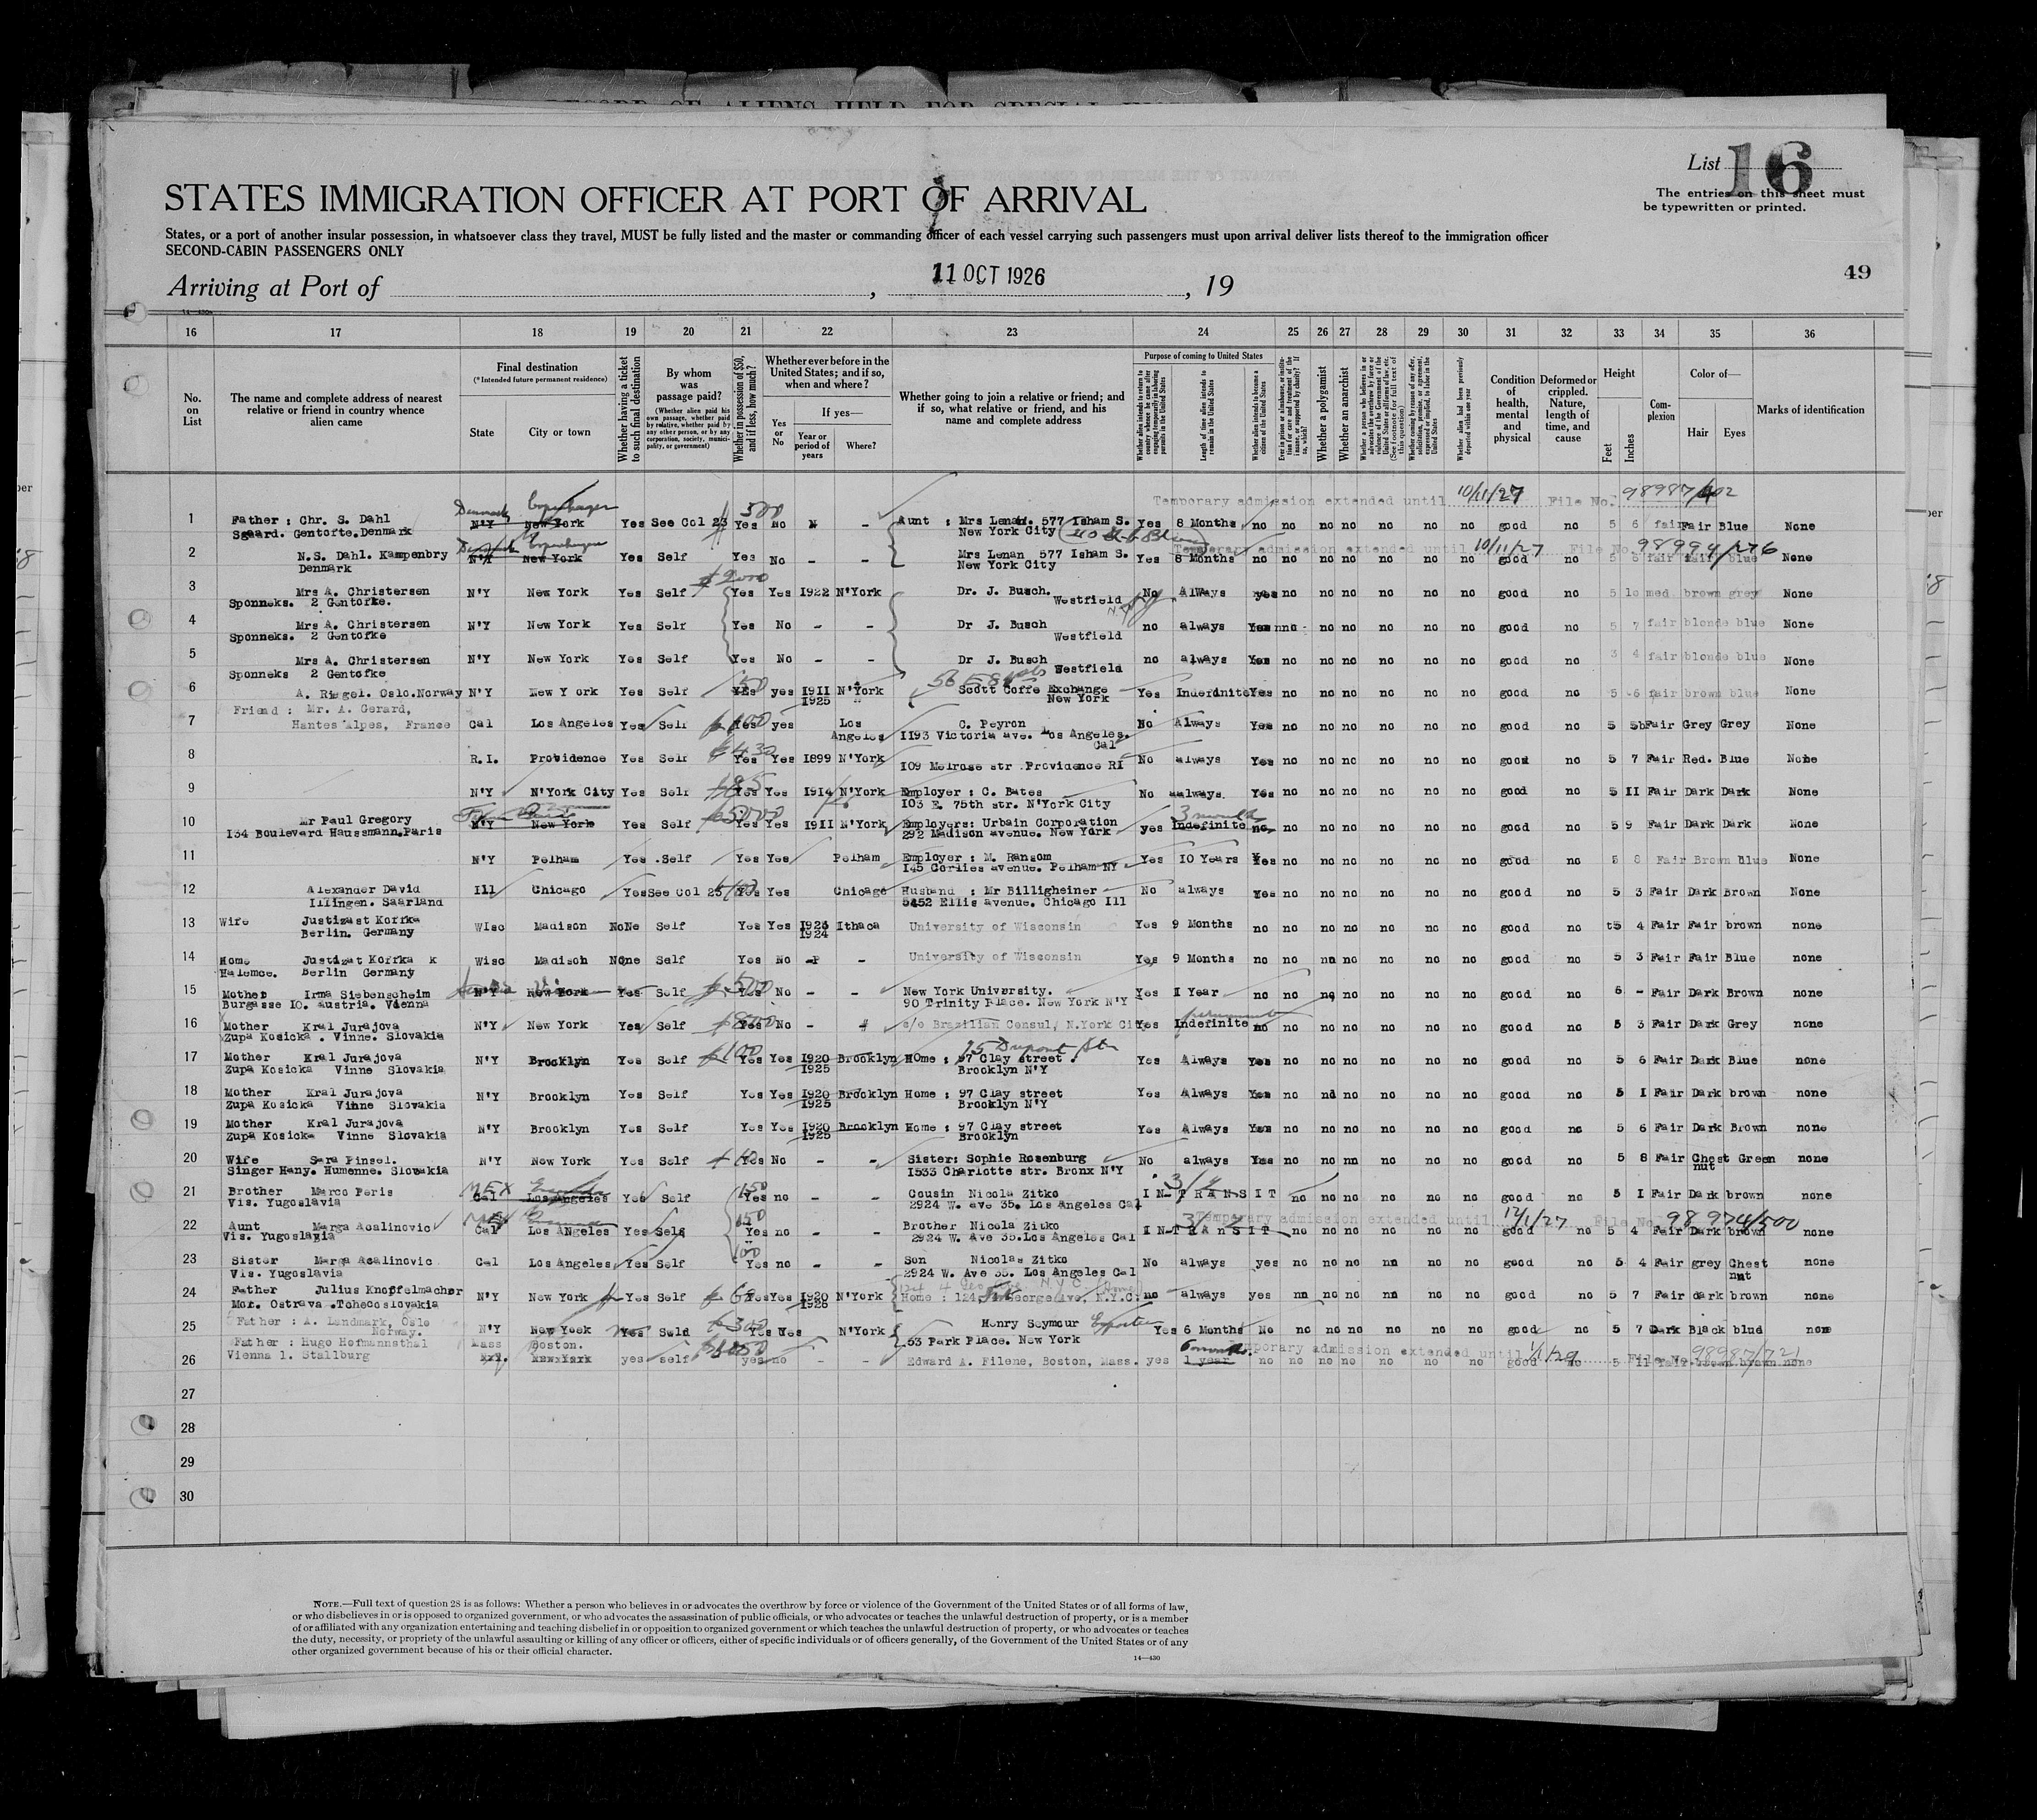 RECORD OF ALIENS HELD FOR SPECIAL
List 16
The entries on this sheet must
be typewritten or printed.
STATES IMMIGRATION OFFICER AT PORT OF ARRIVAL
States, or a port of another insular possession, in whatsoever class they travel, MUST be fully listed and the master or commanding officer of each vessel carrying such passengers must upon arrival deliver lists thereof to the immigration officer
SECOND-CABIN PASSENGERS ONLY
49
Arriving at Port of , 11 OCT 1926 , 19
16 17 18 19 20 21 22 23 24 25 26 27 28 29 30 31 32 33 34 35 36
No. on List
The name and complete address of nearest relative or friend in country whence alien came
Final destination
(*Intended future permanent residence)
State
City or town
Whether having a ticket to such final destination
By whom was passage paid?
(Whether alien paid his own passage, whether paid by relative, whether paid by any other person, or by any corporation, society, municipality, or government)
Whether in possession of $50, and if less, how much?
Whether ever before in the United States; and if so, when and where?
Yes or No
If yes—
Year or period of years
Where?
Whether going to join a relative or friend; and if so, what relative or friend, and his name and complete address
Purpose of coming to United States
Length of time alien intends to remain in the United States
Whether alien intends to become a citizen of the United States
Whether a polygamist
Whether an anarchist
Condition of health, mental and physical
Deformed or crippled. Nature, length of time, and cause
Height
Feet
Inches
Complexion
Color of—
Hair
Eyes
Marks of identification
Temporary admission extended until 10/11/27 File No. 98987/402
1 Father : Chr. S. Dahl Denmark Copenhagen N'Y New York Yes See Col 23 500 Yes No - Aunt : Mrs Lenan. 577 Isham S. Yes 8 Months no no no no no no no good no 5 6 fair Fair Blue None
Sgaard. Gentofte.Denmark New York City
Temporary admission extended until 10/11/27 File No. 98994/276
2 N.S. Dahl. Kampenbry N'Y New York Yes Self Yes No - - Mrs Lenan 577 Isham S. Yes 8 Months no no no no no no no good no 5 6 fair fair blue None
Denmark New York City
3 Mrs A. Christersen N'Y New York Yes Self $2000 Yes Yes 1922 N'York Dr. J. Busch. No Always yes no no no no no no good no 5 10 med brown grey None
Sponneks. 2 Gentofke. Westfield
4 Mrs A. Christersen N'Y New York Yes Self Yes No - - Dr J. Busch no always Yes no no no no no no good no 5 7 fair blonde blue None
Sponneks. 2 Gentofke Westfield
5 Mrs A. Christersen N'Y New York Yes Self Yes No - - Dr J. Busch no always Yes no no no no no no good no 3 4 fair blonde blue None
Sponneks 2 Gentofke Westfield
6 A. Riegel. Oslo.Norway N'Y New York Yes Self 50 Yes yes 1911 N'York Scott Coffe Exchange Yes Indefdnite Yes no no no no no no good no 5 6 fair brown blue None
1925 " New York
Friend : Mr. A. Gerard,
7 Hantes Alpes, France Cal Los Angeles Yes Self Yes yes Los Angeles C. Peyron No Always Yes no no no no no no good no 5 5b Fair Grey Grey None
1193 Victoria ave. Los Angeles. Cal
8 R.I. Providence Yes Self $430 Yes Yes 1899 N'York 109 Melrose str .Providence RI No always Yes no no no no no no good no 5 7 Fair Red. Blue None
9 N'Y N'York City Yes Self Yes Yes 1914 N'York Employer : C. Bates No always. Yes no no no no no no good no 5 11 Fair Dark Dark None
103 E. 75th str. N'York City
10 Mr Paul Gregory N'Y New York Yes Self $5000 Yes Yes 1911 N'York Employers: Urbain Corporation yes Indefinite 3 months no no no no no no no good no 5 9 Fair Dark Dark None
134 Boulevard Haussmann.Paris 292 Madison avenue. New York
11 N'Y Pelham Yes .Self Yes Yes Pelham Employer : M. Ransom Yes 10 Years Yes no no no no no no good no 5 8 Fair Brown Blue None
145 Corlies avenue. Pelham NY
12 Alexander David Ill Chicago Yes See Col 23 Yes Yes Chicago Husband : Mr Billigheiner No always Yes no no no no no no good no 5 3 Fair Dark Brown None
Illingen. Saarland 5452 Ellis avenue. Chicago Ill
13 Wife Justizast Koffka WIsc Madison NoNe Self Yes Yes 1923 Ithaca University of Wisconsin Yes 9 Months no no no no no no no good no t5 4 Fair Fair brown none
Berlin. Germany 1924
14 Home Justizat Koffka k Wisc Madisch None Self Yes No - - University of Wisconsin Yes 9 Months no no no no no no no good no 5 3 Fair Fair Blue none
Halemce. Berlin Germany
15 Mother Irma Siebenscheim N'Y New York Yes Self $500 Yes No - - New York University. Yes I Year no no no no no no no good no 5 - Fair Dark Brown none
Burgasse IO. austria. Vienna 90 Trinity Place. New York N'Y
16 Mother Kral Jurajova N'Y New York Yes Self Yes No - c/o Brazilian Consul, N.York City Yes Indefinite no no no no no no no good no 5 3 Fair Dark Grey none
Zupa Kosicka . Vinne. Slovakia
17 Mother Kral Jurajova N'Y Brooklyn Yes Self $100 Yes Yes 1920 Brooklyn HOme : 97 Clay street . 75 Dupont Str Yes Always Yes no no no no no no good no 5 6 Fair Dark Blue none
Zupa Kosicka Vinne Slovakia 1925 Brooklyn N'Y
18 Mother Kral Jurajova N'Y Brooklyn Yes Self Yes Yes 1920 Brooklyn Home : 97 Clay street Yes Always Yes no no no no no no good no 5 I Fair Dark brown none
Zupa Kosicka Vihne Slovakia 1925 Brooklyn N'Y
19 Mother Kral Jurajova N'Y Brooklyn Yes Self Yes Yes 1920 Brooklyn Home : 97 Clay street Yes Always Yes no no no no no no good no 5 6 Fair Dark Brown none
Zupa Kosicka Vinne Slovakia 1925 Brooklyn
20 Wife Sara Pinsel. N'Y New York Yes Self Yes No - - Sister: Sophie Rosenburg No always Yes no no nn no no no good no 5 8 Fair Chestnut Green none
Singer Hany. Humenne. Slovakia 1533 Charlotte str. Bronx N'Y
21 Brother Marco Peris MEX Cal Los Angeles Yes Self 150 Yes no - - Cousin Nicola Zitko IN-TRANSIT no no no no no no good no 5 I Fair Dark brown none
Vis. Yugoslavia 2924 W. ave 35. Los Angeles Cal
Temporary admission extended until 12/1/27 File No. 98974/500
22 Aunt Marga Acalinovic Cal Los Angeles Yes Self 150 Yes no - - Brother Nicola Zitko IN-TRAnSIT no no no no no no good no 5 4 Fair Dark brown none
Vis. Yugoslavia 2924 W. Ave 35.Los Angeles Cal
23 Sister Marga Acalinovic Cal Los Angeles Yes Self 100 Yes no - - Son Nicolas Zitko No always yes no no no no no no good no 5 4 Fair grey Chest nut none
Vis. Yugoslavia 2924 W. Ave 35. Los Angeles Cal
24 Father Julius Knoffelmacher N'Y New York Yes Self Yes Yes 1920 N'York Home : 124, George Ave, N.Y.C. no always yes nn no no no no no good no 5 7 Fair dark brown none
Mor. Ostrava .Tchecoslovakia 1926
25 Father : A. Landmark, Oslo Norway. N'Y New Yoek Yes Seld $300 Yes Yes N'York Henry Seymour Yes 6 Months No no no no no no no good no 5 7 Dark Black blud none
53 Park Place. New York
Father : Hugo Hofmannsthal Mass Boston. 6 months. Temporary admission extended until 1/1/29 File No. 98987/721
26 Vienna 1. Stallburg New York yes self yes no - - Edward A. Filene, Boston, Mass. yes 1 year no no no no no no no good no 5 11 fair brown brown none
27
28
29
30
NOTE.—Full text of question 28 is as follows: Whether a person who believes in or advocates the overthrow by force or violence of the Government of the United States or of all forms of law,
or who disbelieves in or is opposed to organized government, or who advocates the assassination of public officials, or who advocates or teaches the unlawful destruction of property, or is a member
of or affiliated with any organization entertaining and teaching disbelief in or opposition to organized government or which teaches the unlawful destruction of property, or who advocates or teaches
the duty, necessity, or propriety of the unlawful assaulting or killing of any officer or officers, either of specific individuals or of officers generally, of the Government of the United States or of any
other organized government because of his or their official character.
14—430